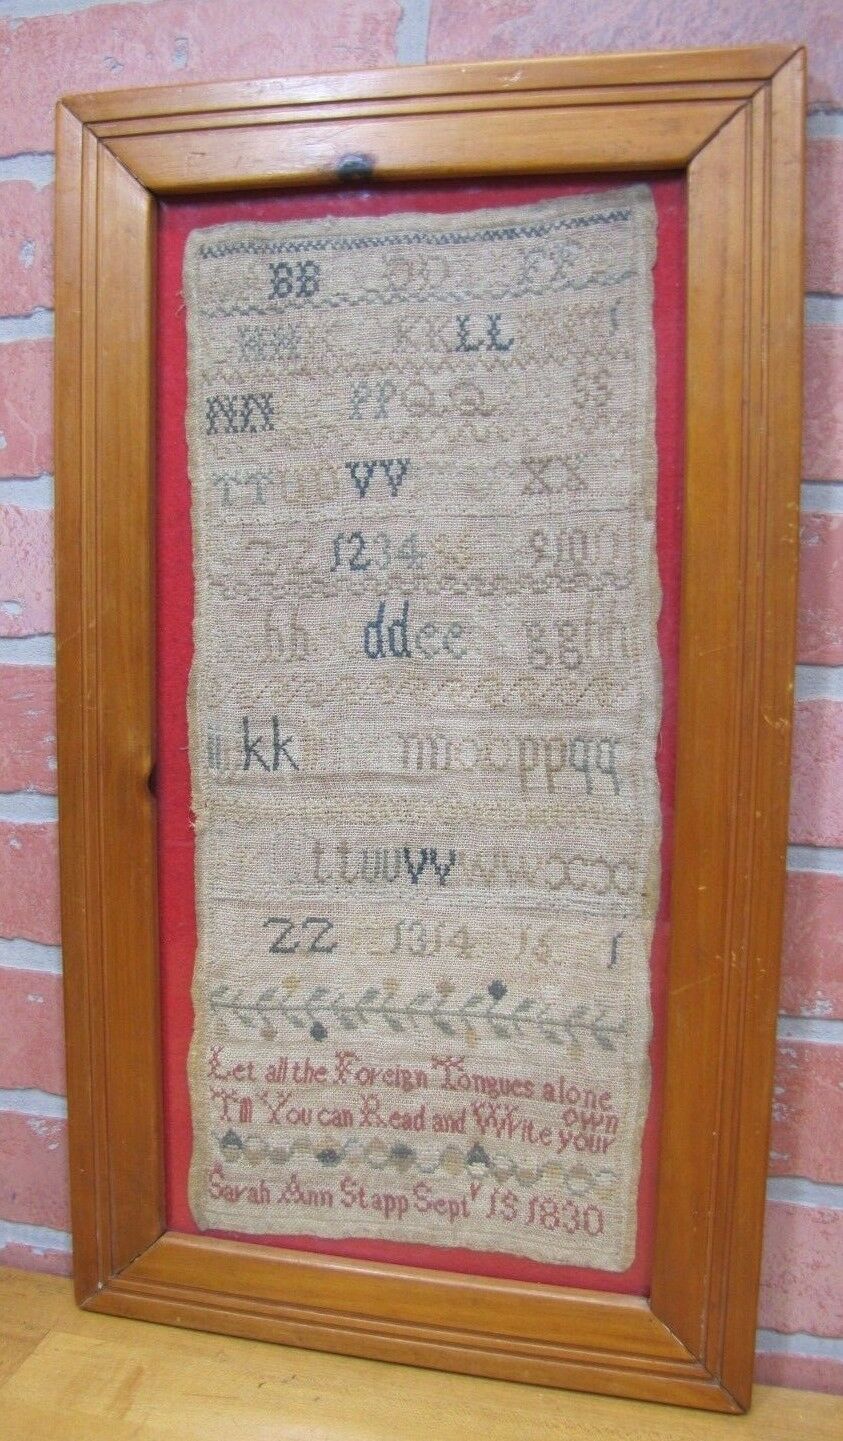 BB DD FF
HH KK LL
NN PP QQ SS
TT UU VV XX
ZZ 1234 910
hh dd ee gg hh
kk nn oo pp qq
tt uu vv ww xx
ZZ 1314 16
Let all the Foreign Tongues alone
Till You can Read and Write your own
Sarah Ann Stapp Sept 15 1830